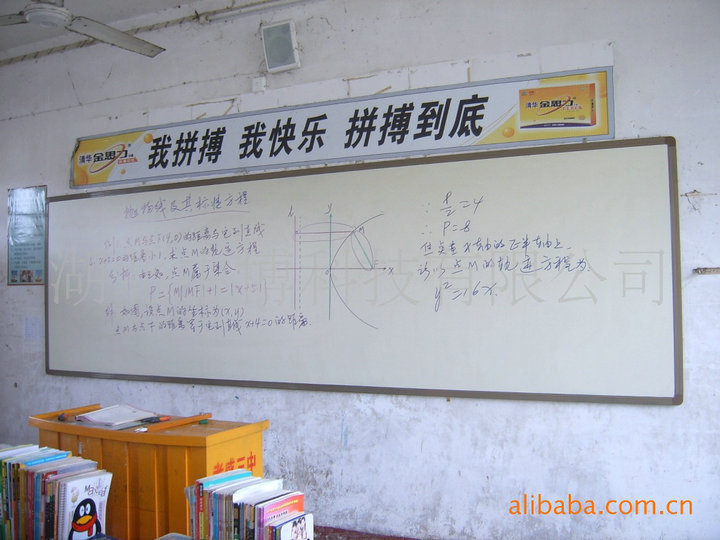 清华 金思力
我拼搏 我快乐 拼搏到底
清华 金思力
抛物线及其标准方程
例1 点M与点F(4,0)的距离比它到直线
l: x+5=0的距离小1,求点M的轨迹方程
分析:由已知,点M属于集合
P={M||MF|+1=|x+5|}
解:如图,设点M的坐标为(x,y)
点M与点F的距离等于它到直线x+4=0的距离
l
y
M
F
x
∴ p/2=4
∴ P=8
但点在x轴的正半轴上
所以点M的轨迹方程为
y²=16x
科技有限公司
alibaba.com.cn